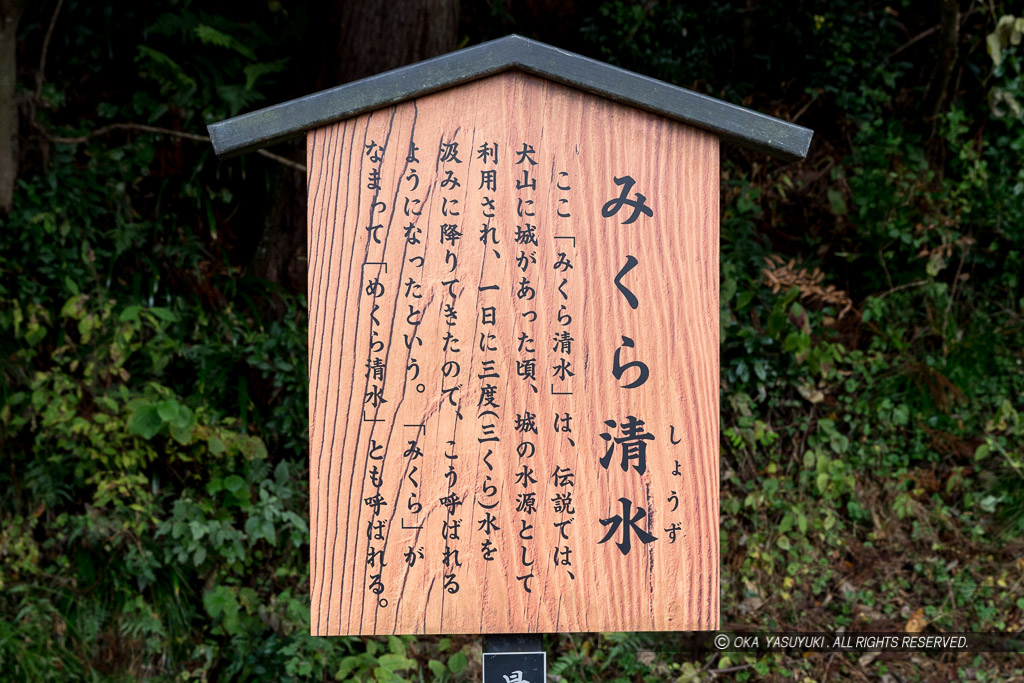 みくら清水
しょうず
ここ「みくら清水」は、伝説では、
犬山に城があった頃、城の水源として
利用され、一日に三度(三くら)水を
汲みに降りてきたので、こう呼ばれる
ようになったという。「みくら」が
なまって「めくら清水」とも呼ばれる。
© OKA YASUYUKI . ALL RIGHTS RESERVED.